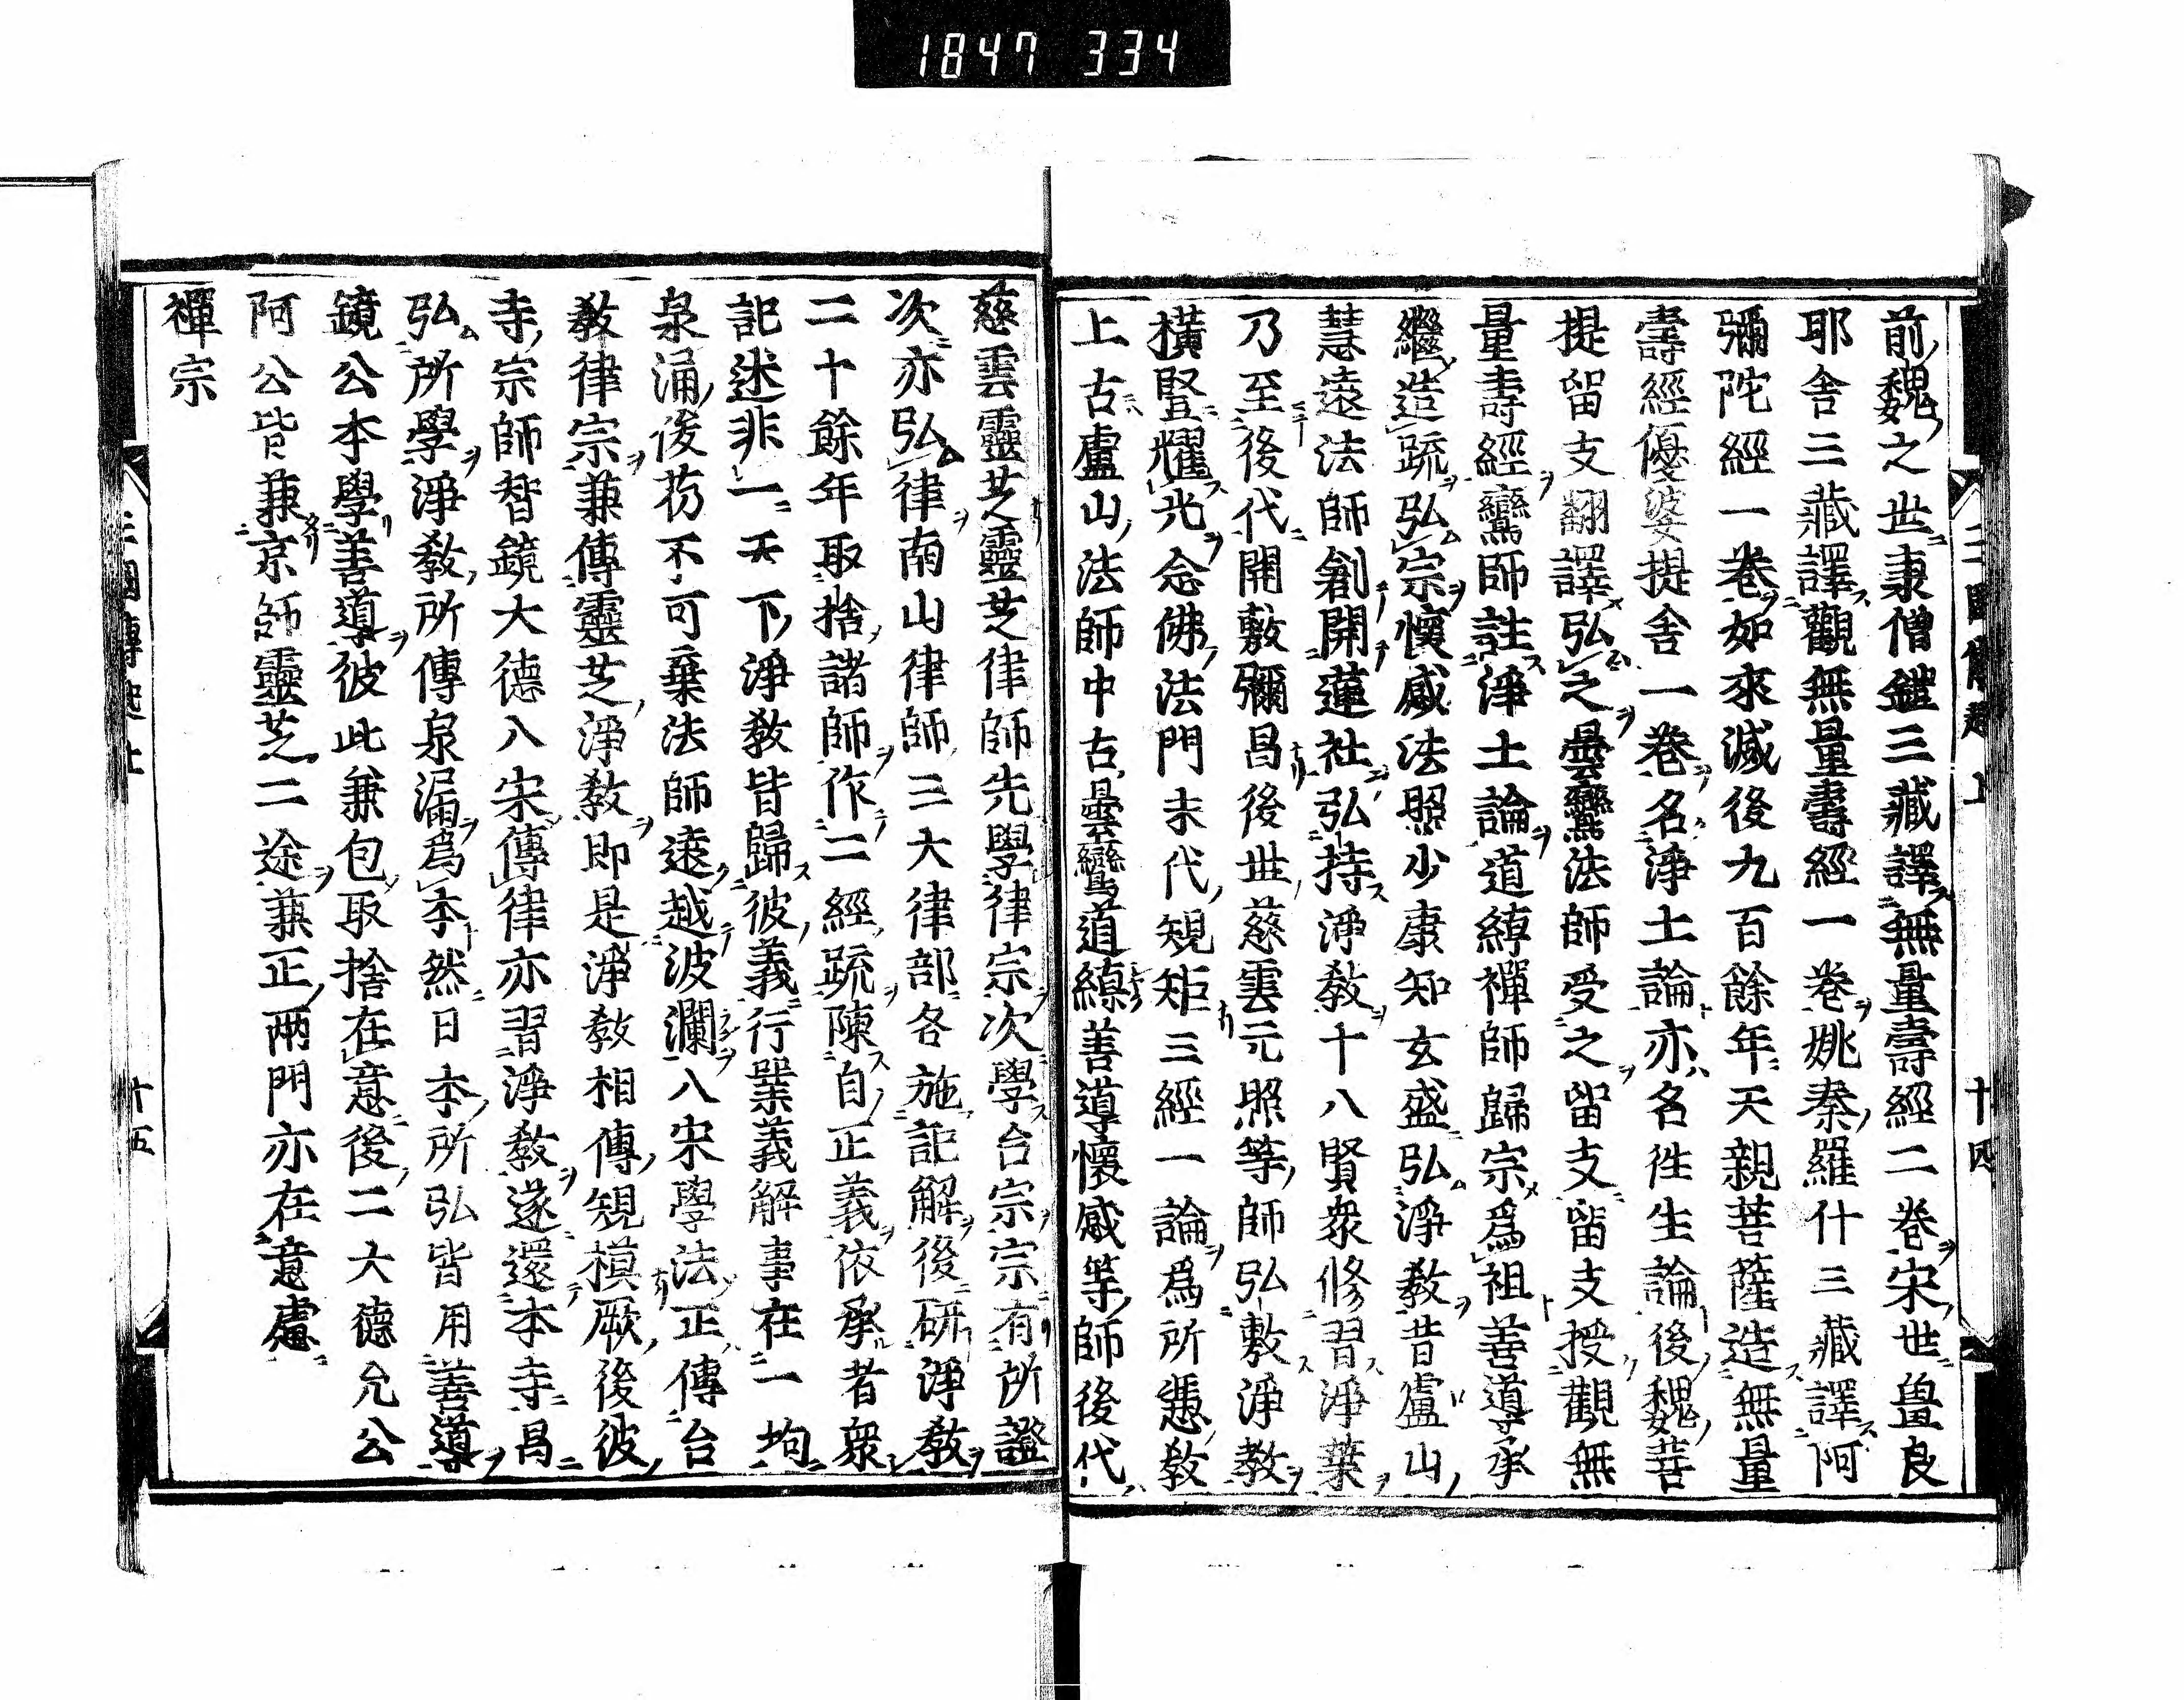 1847 334
十四
前魏之世康僧鎧三藏譯無量壽經二卷宋世畺良
耶舍三藏譯觀無量壽經一卷姚秦羅什三藏譯阿
彌陀經一卷如來滅後九百餘年天親菩薩造無量
壽經優婆提舍一卷名淨土論亦名徃生論後魏菩
提留支翻譯弘之曇鸞法師受之留支留支授觀無
量壽經鸞師註淨土論道綽禪師歸宗爲祖善導承
繼造疏弘宗懷感法照少康知玄盛弘淨敎昔盧山
慧遠法師創開蓮社弘持淨敎十八賢衆修習淨業
乃至後代開敷彌昌後世慈雲元照等師弘敷淨敎
橫豎耀光念佛法門末代規矩三經一論爲所憑敎
上古盧山法師中古曇鸞道綽善導懷感等師後代
慈雲靈芝靈芝律師先學律宗次學台宗宗有所證
次亦弘律南山律師三大律部各施記解後研淨敎
二十餘年取捨諸師作二經疏陳自正義依承者衆
記述非一天下淨敎皆歸彼義行業義解事在一均
泉涌俊芿不可棄法師遠越波瀾入宋學法正傳台
敎律宗兼傳靈芝淨敎即是淨敎相傳規模厥後彼
寺宗師智鏡大德入宋傳律亦習淨敎遂還本寺昌
弘所學淨敎所傳泉漏爲本然日本所弘皆用善導
鏡公本學善導彼此兼包取捨在意後二大德允公
阿公皆兼京師靈芝二途兼正兩門亦在意處
禪宗
十五